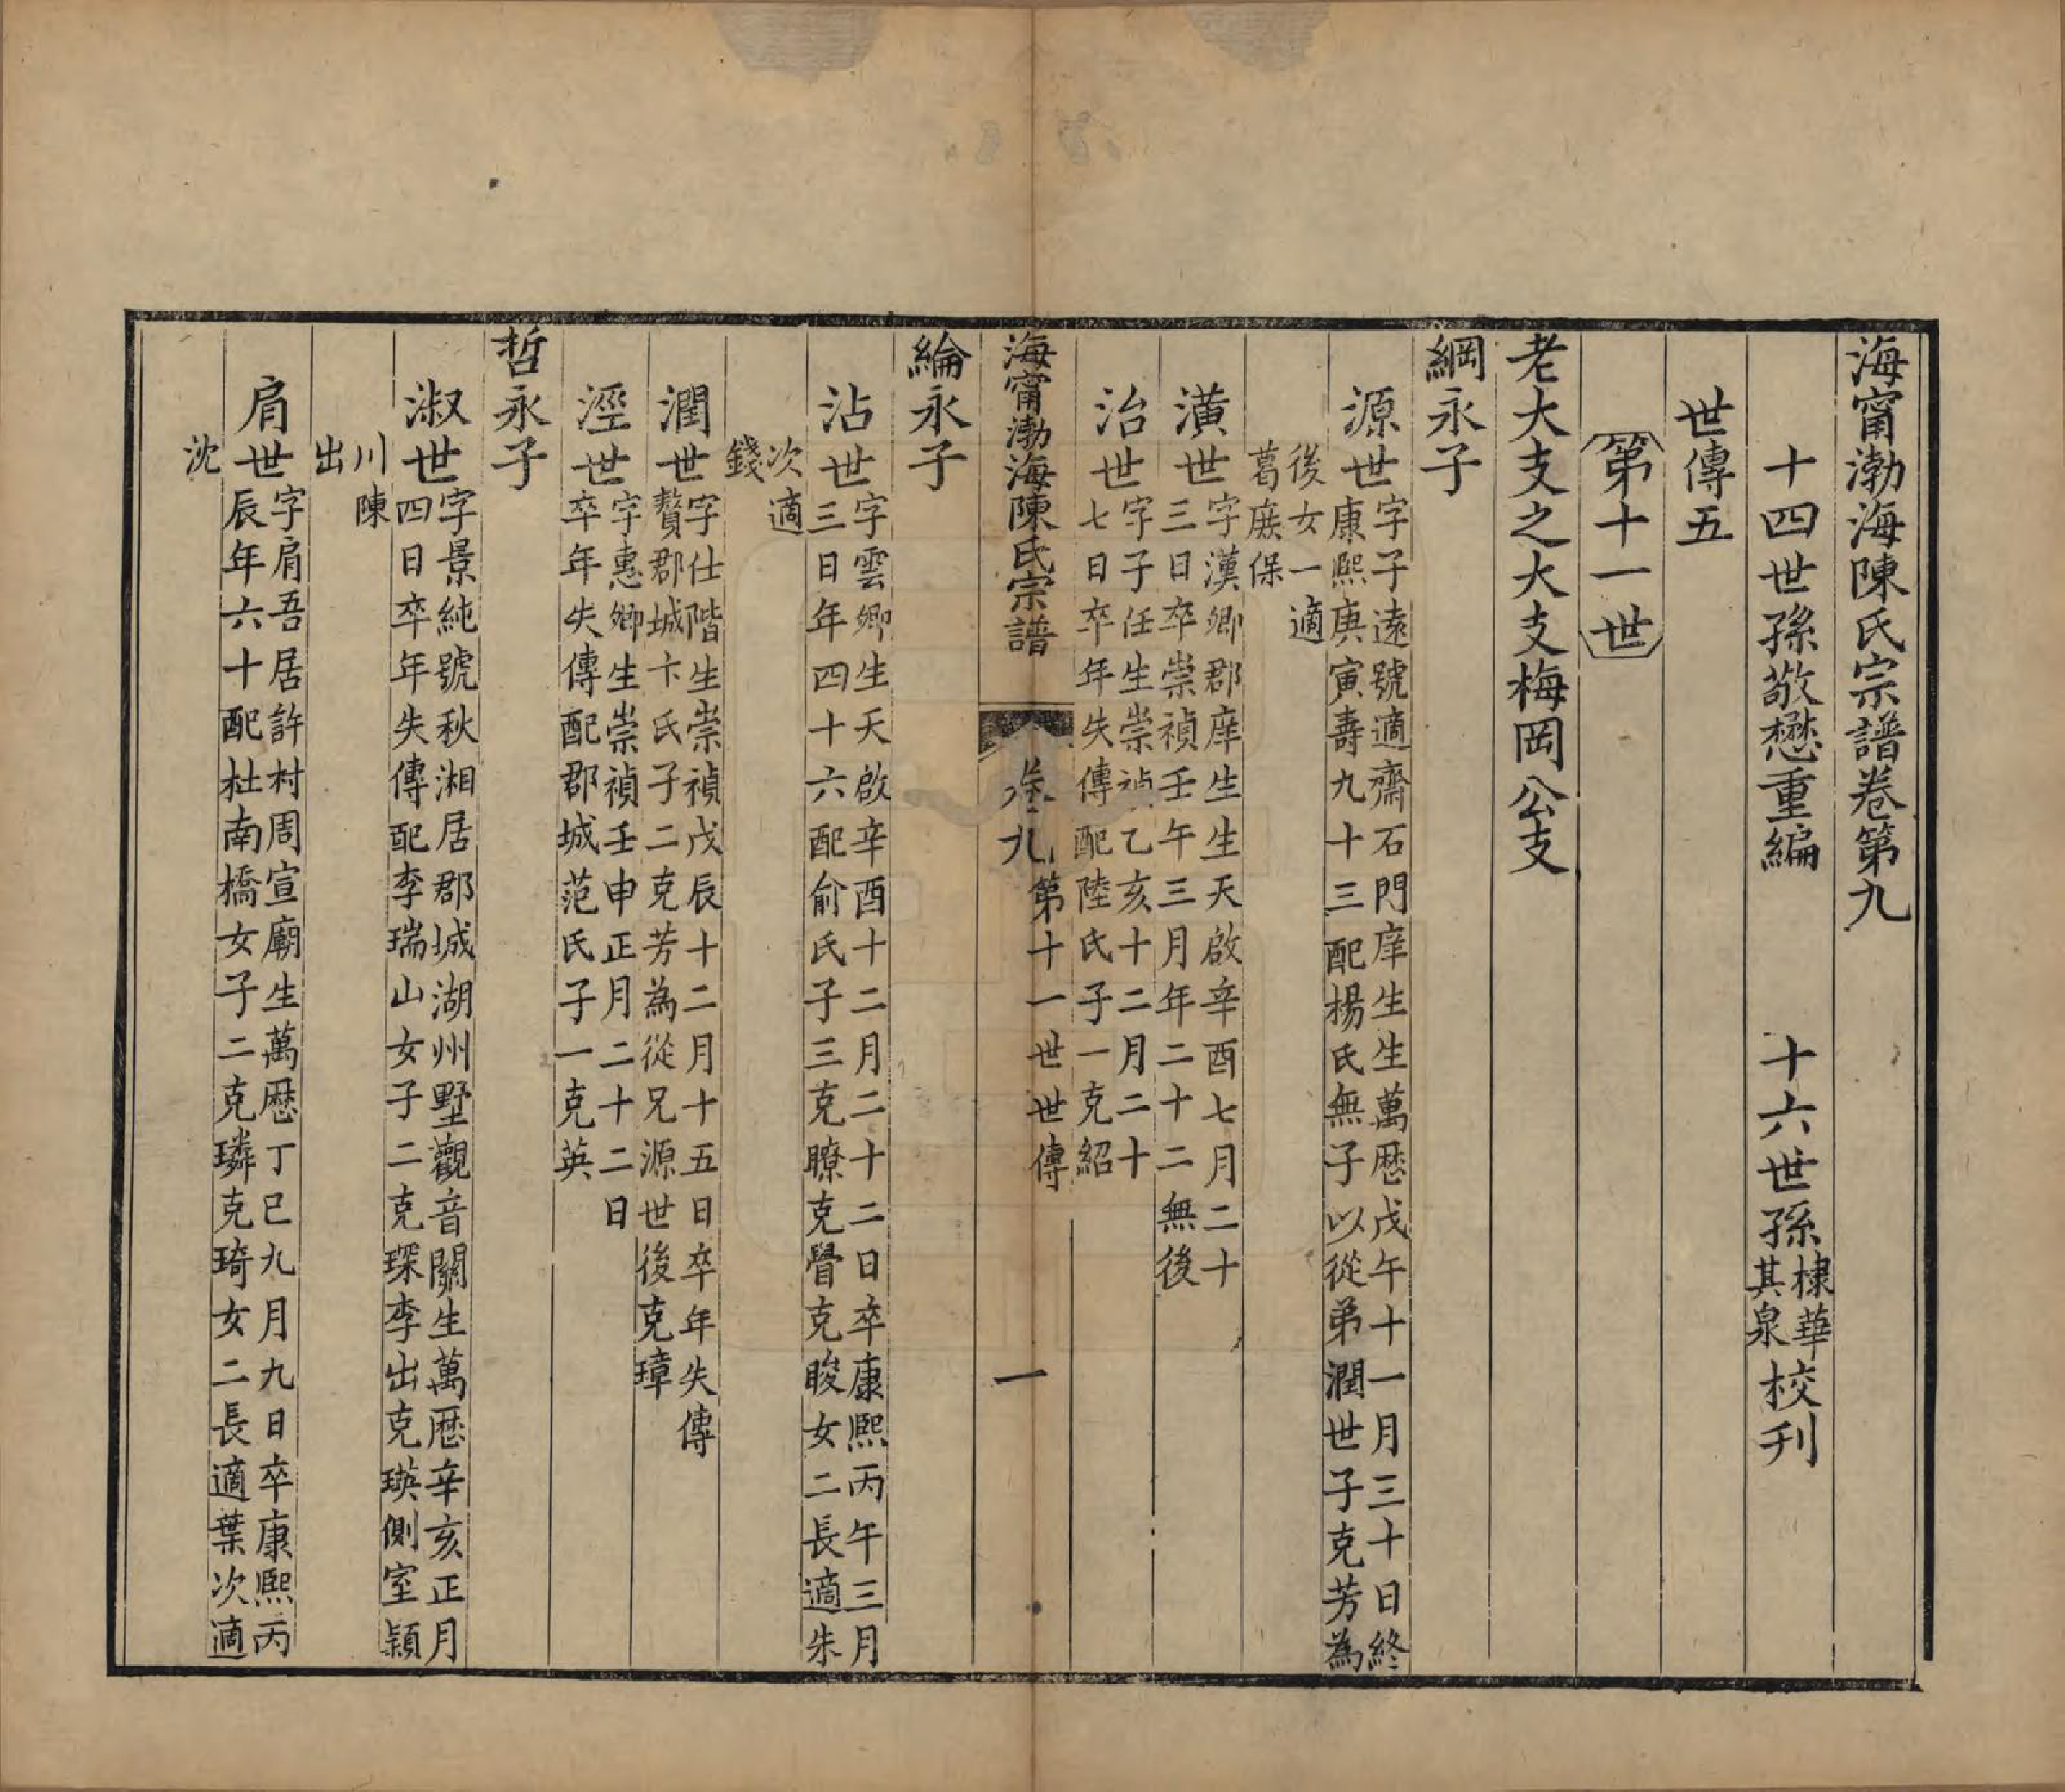 海甯渤海陳氏宗譜卷第九
十四世孫敬懋重編 十六世孫棣華其泉校刊
世傳五
第十一世
老大支之大支梅岡公支
綱永子
源世字子遠號適齋石門庠生生萬厯戊午十一月三十日終
康熙庚寅壽九十三配楊氏無子以從弟潤世子克芳為
後女一適
葛蔟保
潢世字漢卿郡庠生生天啟辛酉七月二十
三日卒崇禎壬午三月年二十二無後
治世字子任生崇禎乙亥十二月二十
七日卒年失傳配陸氏子一克紹
海甯渤海陳氏宗譜 卷九 第十一世世傳 一
綸永子
沾世字雲卿生天啟辛酉十二月二十二日卒康熙丙午三月
三日年四十六配俞氏子三克瞭克睯克睃女二長適朱
次適
錢
潤世字仕階生崇禎戊辰十二月十五日卒年失傳
贅郡城卞氏子二克芳為從兄源世後克璋
溼世字惠卿生崇禎壬申正月二十二日
卒年失傳配郡城范氏子一克英
哲永子
淑世字景純號秋湘居郡城湖州墅觀音關生萬厯辛亥正月
四日卒年失傳配李瑞山女子二克琛李出克瑛側室穎
川陳
出
肩世字肩吾居許村周宣廟生萬厯丁巳九月九日卒康熙丙
辰年六十配杜南橋女子二克璘克琦女二長適葉次適
沈